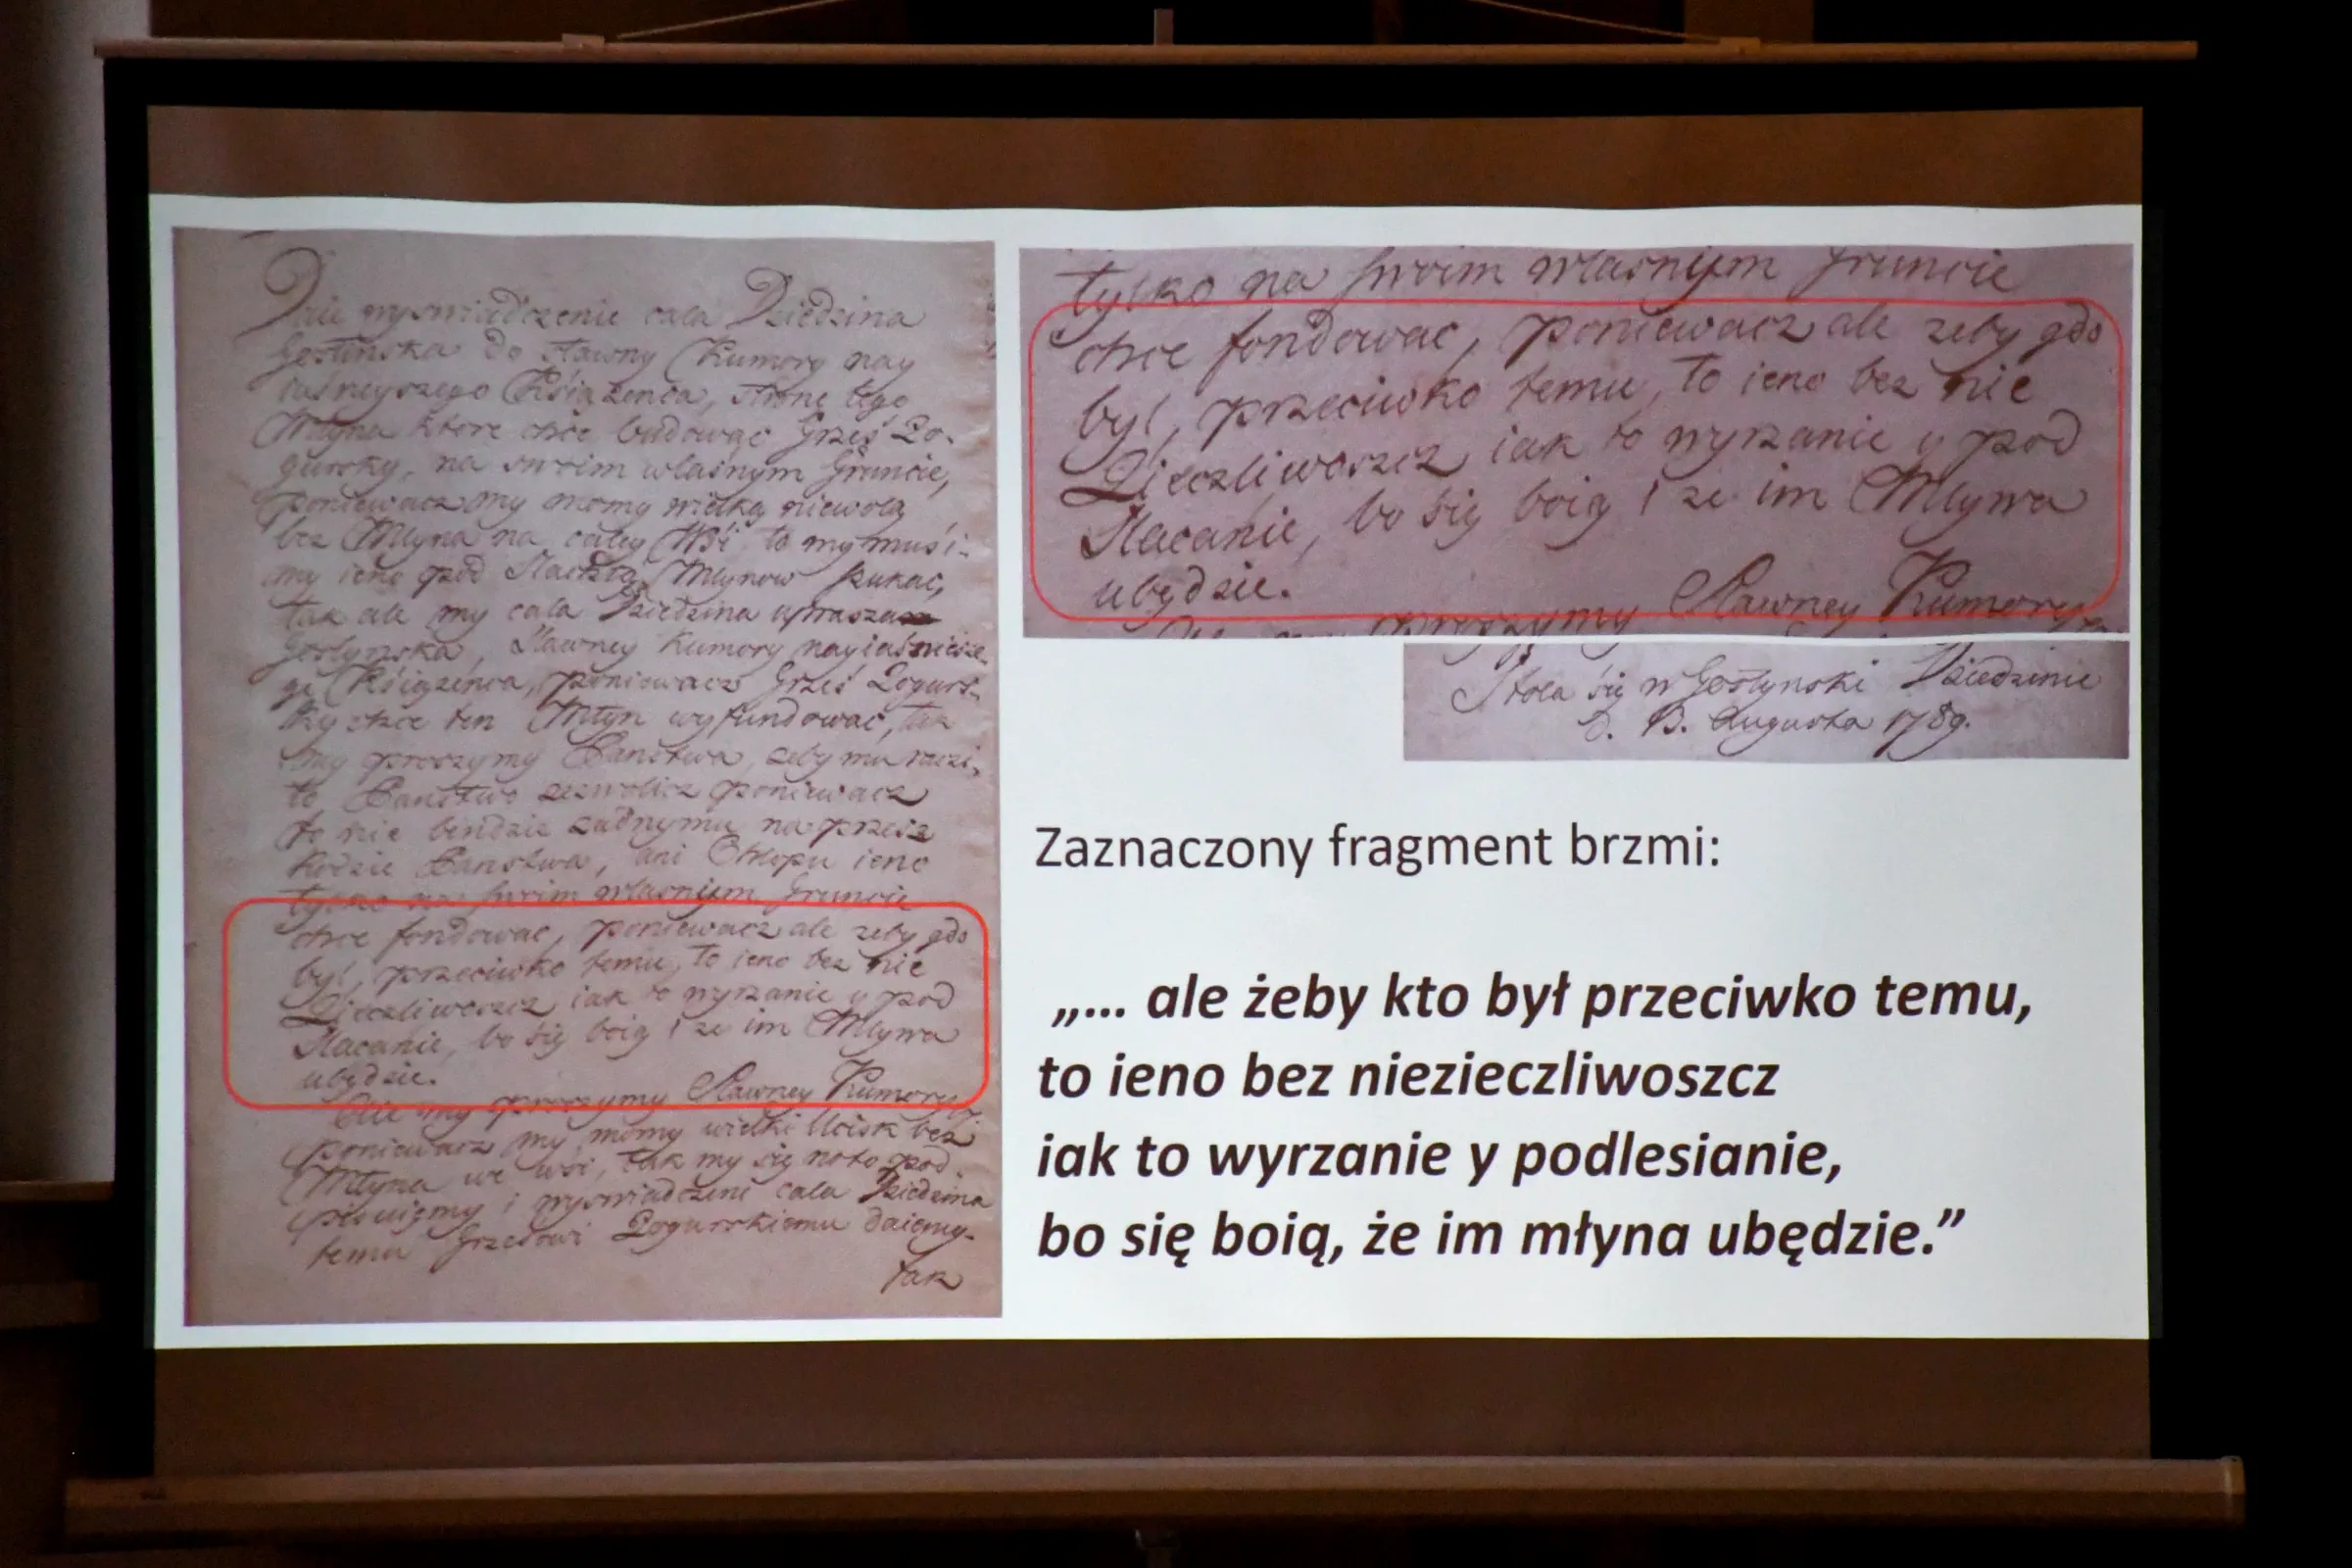 Daie wyswiadczenie cala Dziedzina
Gostinska do slawny Kumory nay
iasneyszego Ksiązenca, strone tego
Mlyna ktore chce budowąc Grzes Po-
gursky, na swoim wlasnym Gruncie,
poniewacz my momy wielką niewolą
bez Mlyna na caley Wsi to my musi-
my ieno pod Mlynow szukac,
tak ale my cala Dziedzina upraszam
Gostynska, Slawney Kumory nayiasniesze
go Ksiązenca, poniewacz Grzes Pogurs-
ky chce ten Mlyn wyfundowac, tak
my proszymy Panstwa, zeby mu raczi-
lo Panstwo zezwolicz poniewacz
to nie bendzie zadnymu na przesz
kodzie Panstwa, ani Chlopu ieno
tylko na swoim wlasnym Gruncie
chce fondowac, poniewacz ale zeby gdo
byl, przeciwko temu, to ieno bez nie
Zieczliwoszcz iak to wyrzanie y pod
bo się boią ze im Mlyna
ubędzie.
Ale my proszymy Slawney Kumory
poniewacz my momy wielki Ucisk bez
Mlyna we wsi, tak my się noto pod-
pisuiemy i wyswiadczeni cala Dziedzina
temu Grzesowi Pogurskiemu daiemy.
tak
tylko na swoim wlasnym Gruncie
chce fondowac, poniewacz ale zeby gdo
byl, przeciwko temu, to ieno bez nie
Zieczliwoszcz iak to wyrzanie y pod
bo się boią ze im Mlyna
ubędzie.
Ale my proszymy Slawney Kumory
Stola się w Gostynski Dziedzinie
d. 13. Augusta 1789.
Zaznaczony fragment brzmi:
„... ale żeby kto był przeciwko temu,
to ieno bez niezieczliwoszcz
iak to wyrzanie y podlesianie,
bo się boią, że im młyna ubędzie.”